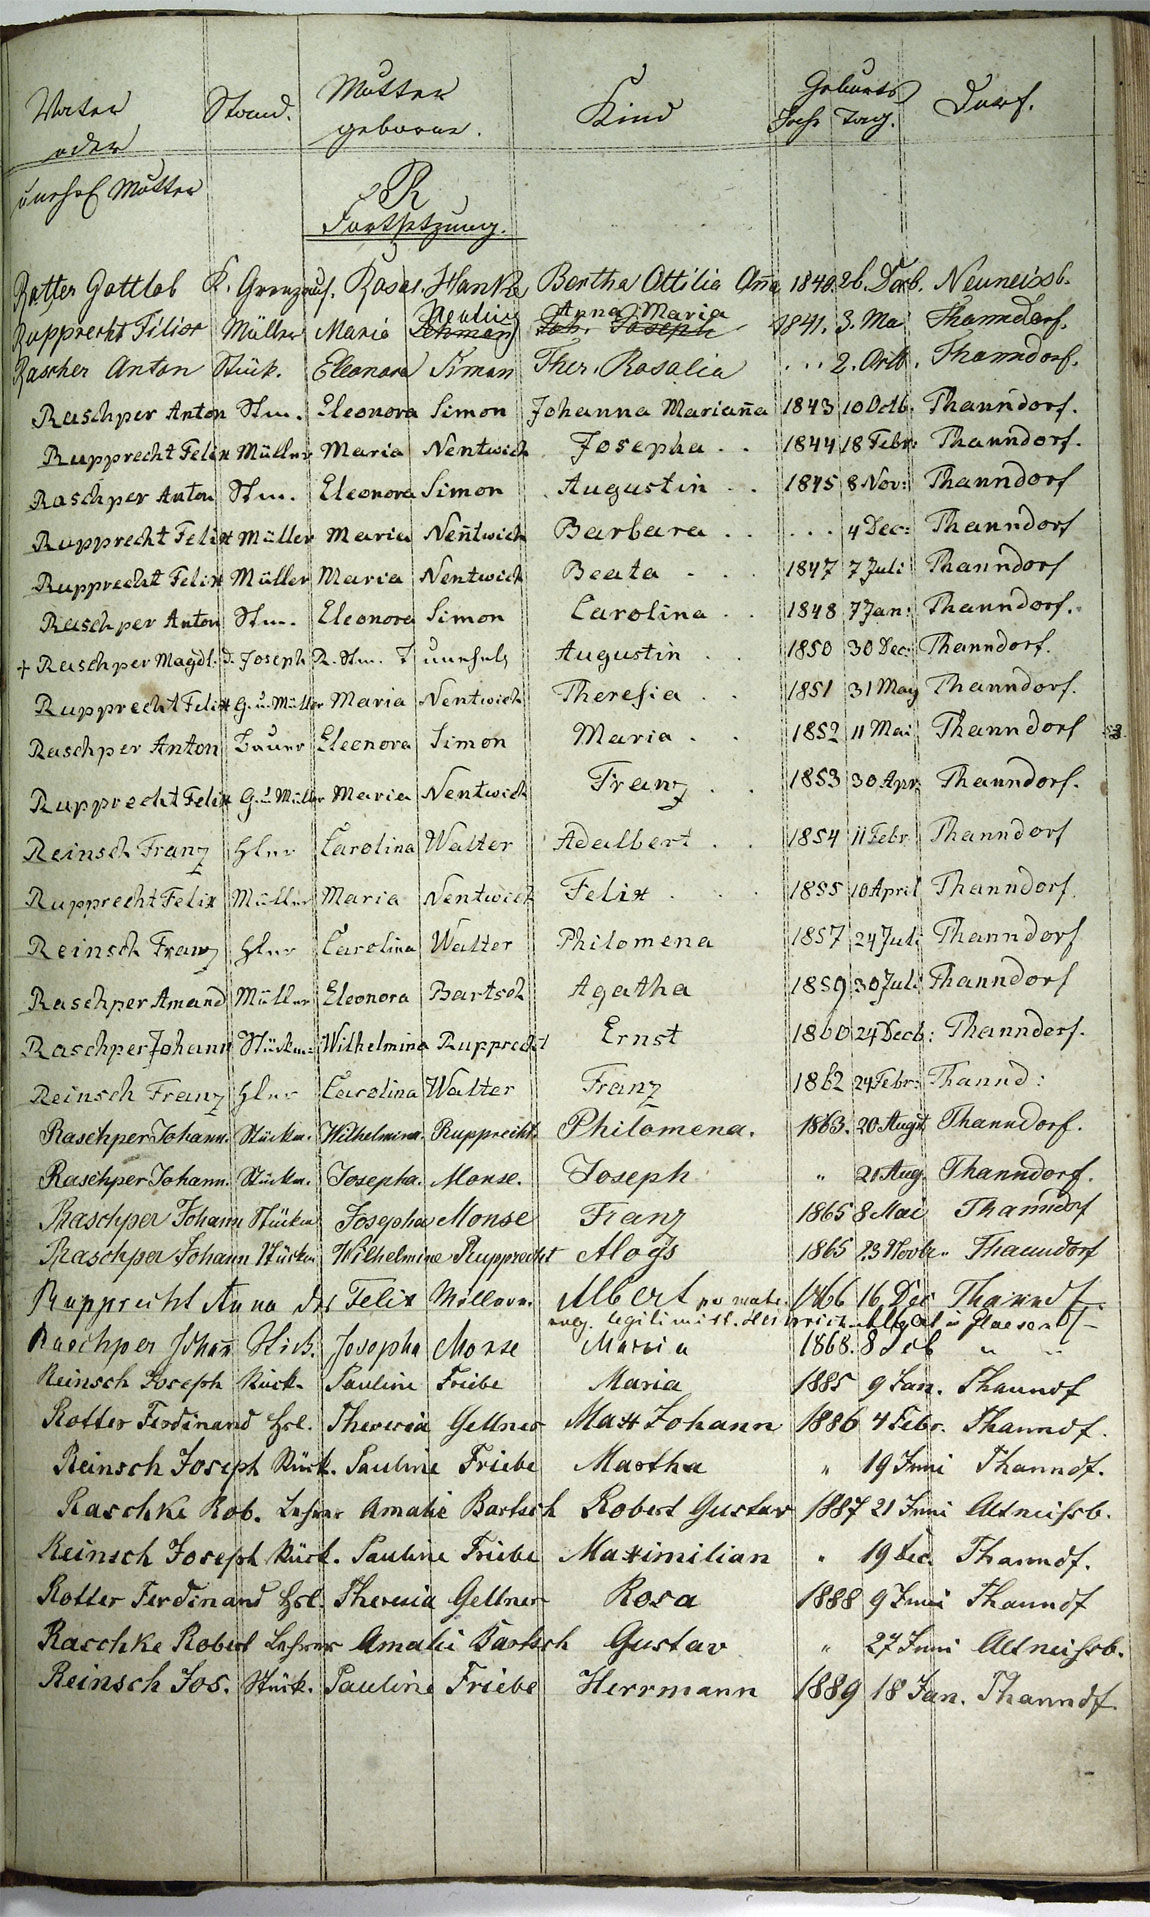 Vater Stand. Mutter Kind Geburts Dorf.
oder geborne. Jahr Tag.
unehel Mutter
R
Fortsetzung.
Rotter Gottlob K. Grenzauf. Rosal. Hanke Bertha Ottilia Aña 1840. 26. Decb. Neuneissb.
Nentwig Anna Maria
Rupprecht Müller Maria Joseph 1841. 3. Mai Thanndorf.
Rascher Anton Stück. Eleonora Simon Ther. Rosalia . . . 2. Octb. Thanndorf.
Raschper Anton Stm. Eleonora Simon Johanna Mariaña 1843 10 Octb. Thanndorf.
Rupprecht Felix Müller Maria Nentwich Josepha . . 1844 18 Febr: Thanndorf.
Raschper Anton Stm. Eleonora Simon Augustin . . 1845 8 Nov: Thanndorf
Rupprecht Felix Müller Maria Neñtwich Barbara . . . . . 4 Dec: Thanndorf
Rupprecht Felix Müller Maria Nentwich Beata . . . 1847 7 Juli Thanndorf
Raschper Anton Stm. Eleonora Simon Carolina . 1848 7 Jan: Thanndorf.
+ Raschper Magdl. d. Joseph R. Stm. T unehel Augustin . . 1850 30 Dec: Thanndorf.
Rupprecht Felix G. u. Müller Maria Nentwich Theresia . . 1851 31 May Thanndorf.
Raschper Anton Bauer Eleonora Simon Maria . . 1852 11 Mai Thanndorf
Rupprecht Felix G. u. Müller Maria Nentwich Franz . . 1853 30 Apr. Thanndorf.
Reinsch Franz Hler Carolina Walter Adalbert . . 1854 11 Febr. Thanndorf
Rupprecht Felix Müller Maria Nentwich Felix . . . 1855 10 April Thanndorf.
Reinsch Franz Hler Carolina Walter Philomena 1857 24 Juli Thanndorf
Raschper Amand Müller Eleonora Bartsch Agatha 1859 30 Juli Thanndorf
Raschper Johann Stückm: Wilhelmina Rupprecht Ernst 1860 24 Decb: Thanndorf.
Reinsch Franz Hler Carolina Walter Franz 1862 24 Febr: Thannd:
Raschper Johann. Stückm. Wilhelmina. Rupprecht. Philomena. 1863. 20 Augst Thanndorf.
Raschper Johann. Stückm. Josepha. Monse. Joseph " 21 Aug. Thanndorf.
Raschper Johann Stückm Josepha Monse Franz 1865 8 Mai Thanndorf
Raschper Johann Stückm Wilhelmine Rupprecht Aloys 1865 23 Novbr. Thanndorf
Rupprecht Anna des Felix Müllers. Albert 1866 16 Dec Thanndf
legitimirt. Heinrich
Raschper Johañ Stück. Josepha Monse Maria 1868. 8 Feb " "
Reinsch Joseph Stück. Pauline Friebe Maria 1885 9 Jan. Thanndf
Rotter Ferdinand Hsl. Theresia Gellner Max Johann 1886 4 Febr. Thanndf.
Reinsch Joseph Stück. Pauline Friebe Martha " 19 Juni Thanndf.
Raschke Rob. Lehrer Amalie Bartsch Robert Gustav 1887 21 Juni Altneissb.
Reinsch Joseph Stück. Pauline Friebe Maximilian " 19 Dec. Thanndf.
Rotter Ferdinand Hsl. Theresia Gellner Rosa 1888 9 Juni Thanndf
Raschke Robert Lehrer Amalie Bartsch Gustav " 27 Juni Altneissb.
Reinsch Jos. Stück. Pauline Friebe Herrmann 1889 18 Jan. Thanndf.